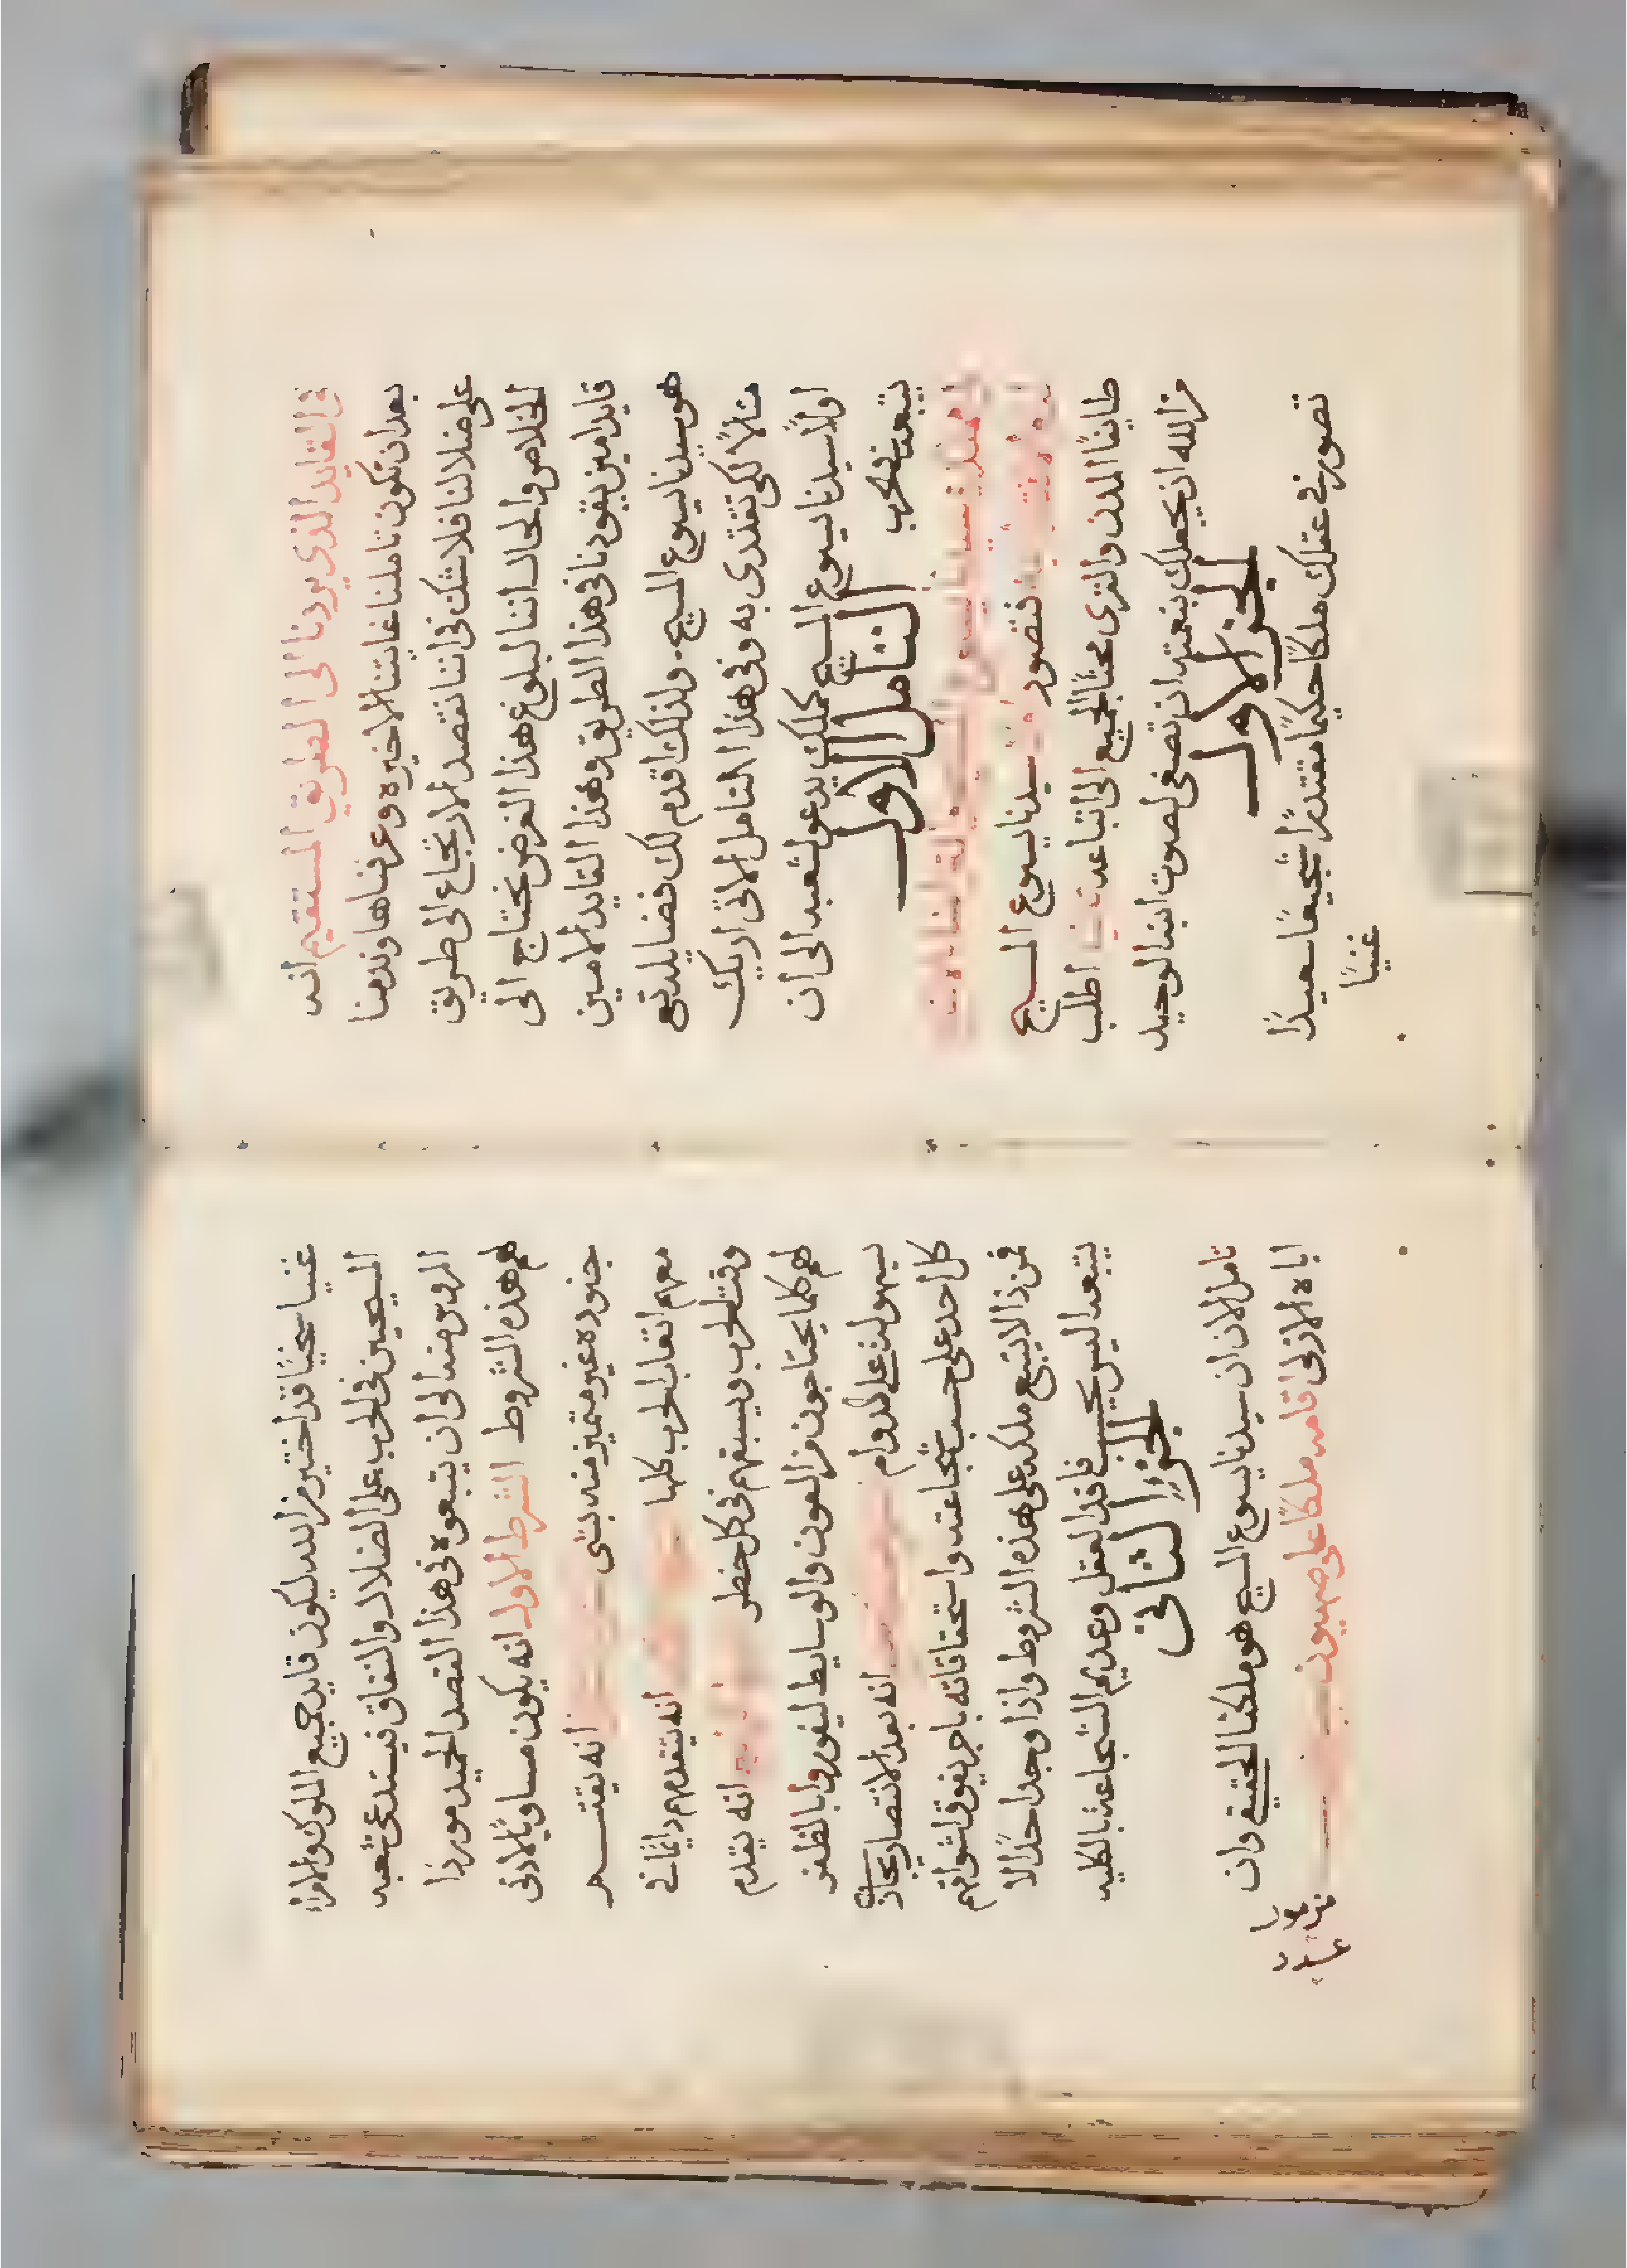 في القايد الذي يردنا الى الطريق المستقيم انه
بعد ان تكون تاملنا غايتنا الاخيره وعرفناها وندمنا
على ضلالنا فلا شك في اننا نقصد الارتجاع الى طريق
الخلاص والحال اننا لبلوغ هذا الغرض نحتاج الى
قايد امين يقودنا في هذا الطريق وهذا القايد الامين
هو سيدنا يسوع المسيح. ولذلك اقدم لك فضايله تبع
مثالًا لكي تقتدى به وفي هذا التامل الاتي اريك
اولًا سيدنا يسوع المسيح كملك يدعو شعبه الى ان
يتبعه في الحرب
التامل الاول
فتصور سيدنا يسوع المسيح
طايفًا المدن والقرى محثًا الجميع الى اتباعه اطلب
من الله ان يجعلك بنعمته ان تصغي لصوت ابنه الوحيد
الجز الاول
تصور في عقلك ملكًا حكيمًا مقتدرًا شجيعًا سعيدًا
غنيًا
غنيا سخيًا قد اختير من الله ليكون قايد جميع الملوك والامراء
المسيحيين في الحرب على الضلال والنفاق فيستدعى شعبه
المروس منه الى ان يتبعوه في هذا القصد الحميد موردًا
لهم هذه الشروط الشرط الاول انه يكون مساويًا لادنى
جنوده غير متميز منه بشى انه يقتسم
معهم اتعاب الحرب كلها انه يتقدمهم دايمًا في
وقت الحرب ويسبقهم في كل خطر انه يقدم
لهم كلما يحتاجون من العون والوسايط ليفوروا بالظفر
بسهوله على الدوام انه بعد الانتصار يجازى
كل احد على حسب شجاعته واستحقاقاته باجر يفوق اشواقهم
فمن ذا لا يتبع ملكه على هذه الشروط واذا وجد احدًا لا
يتبعه اليس يحسب فاقد العقل وعديم الشجاعه بالكليه
الجزء الثاني
تامل الان ان سيدنا يسوع المسيح هو ملكنا الحقيقي وان
اباه الازلى اقامه ملكًا على صهيون